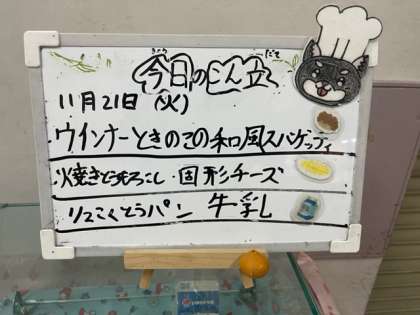 今日のこん立
きょう だて
11月21日(火)
ウインナーときのこの和風スパゲッティ
焼きとうもろこし・固形チーズ
りんごくとうパン 牛乳